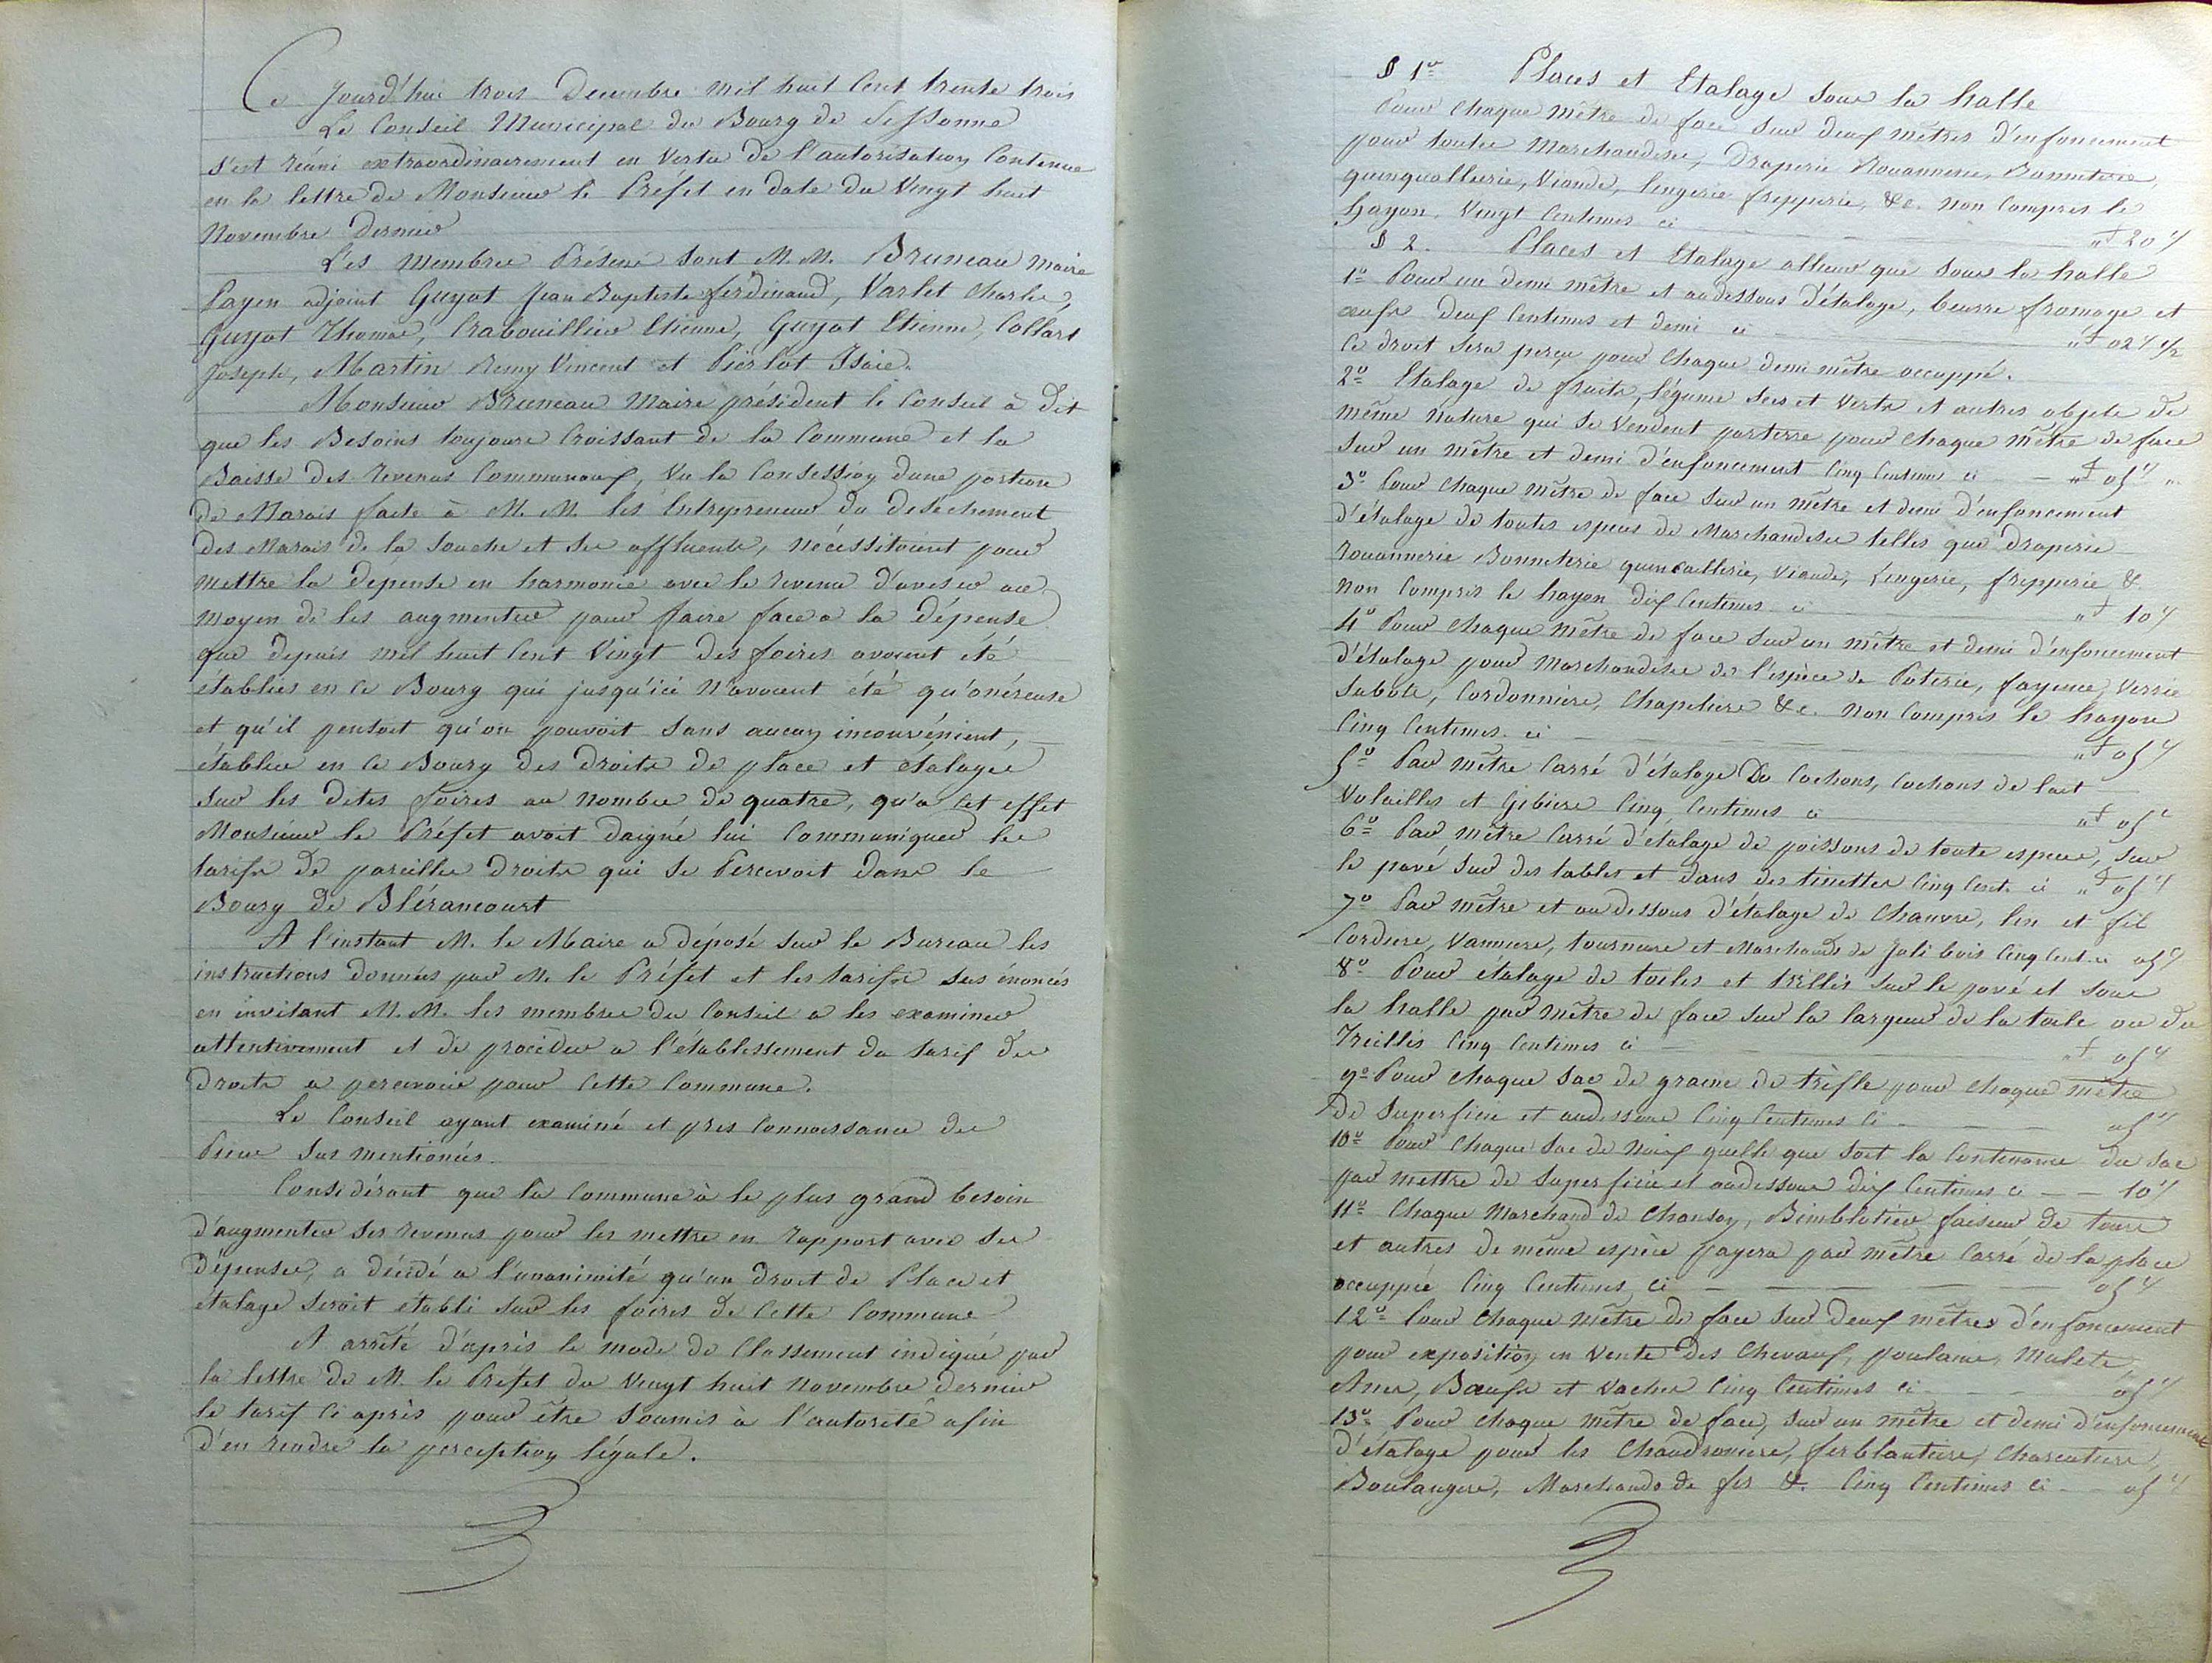 Ce Jourd'hui trois Decembre mil huit Cent trente trois
Le Conseil Municipal du Bourg de Sissonne
s'est réuni extraordinairement en Vertu de l'autorisation Contenue
en la lettre de Monsieur le Préfet en date du Vingt huit
Novembre Dernier
Les membres Présens sont M. M. Bruneau maire
Payen adjoint Guyot Jean Baptiste ferdinand, Varlet Charles,
Guyot Thomas, Crabouillier Etienne, Guyot Etienne, Collart
Joseph, Martin Remy Vincent et Pierlot Isaie.
Monsieur Bruneau Maire président le Conseil à dit
que les Besoins toujours Croissant de la Commune et la
Baisse des revenus Communaux, Vu la Consession dune portion
de Marais faite à M. M. les Entrepreneurs du deséchement
des Marais de la Souche et ses affluents, nécéssitoient pour
mettre la dépense en harmonie avec le revenu d'aviser au
moyen de les augmenter pour faire face a la dépense
que depuis mil huit Cent Vingt des foires avoient été
établies en ce Bourg qui jusqu'ici N'avoient été qu'onéreuse
et qu'il pensoit qu'on pouvoit sans aucun inconvénient,
établir en ce Bourg des droits de place et étalages
sur les dites foires au nombre de quatre, qu'a cet effet
Monsieur le Préfet avoit daigné lui Communiquer les
tarifs de pareilles droits qui se Percevoit dans le
Bourg de Blérancourt
A l'instant M. le Maire a déposé sur le Bureau les
instructions données par M. le Préfet et les tarifs sus énoncés
en invitant M. M. les membres du Conseil a les examiner
attentivement et de procéder a l'établissement du tarif des
droits a percevoir pour cette Commune.
Le Conseil ayant examiné et pris Connoissance des
Pièces sus mentionées.
Considérant que la Commune à le plus grand besoin
d'augmenter ses revenus pour les mettre en rapport avec ses
dépenses, a décidé a l'unanimité qu'un droit de Place et
étalage seroit établi sur les foires de Cette Commune
A arrêté d'après le mode de Classement indiqué par
la lettre de M. le Préfet du Vingt huit Novembre dernier
le tarif Ci après pour être soumis à l'autorité afin
d'en rendre la perception légale.
§ 1er Places et Etalage sous la halle
Pour Chaque mètre de face sur deux mètres d'enfoncement
pour toutes Marchandises, Draperie Rouannerie, Bonneterie,
quinquallerie, Viande, lingerie fripperie, &c. non Compris le
hayon. Vingt Centimes ci "f 20 c
§ 2. Places et Etalage ailleurs que sous la halle
1o Pour un demi mètre et audessous d'étalage, beurre fromage et
œufs deux Centimes et demi ci "f 02 c 1/2
Ce droit sera perçu pour Chaque demi mètre occuppé.
2o Etalage de fruits, légumes secs et Verts et autres objets de
même nature qui se Vendent parterre pour chaque mètre de face
sur un mètre et demi d'enfoncement Cinq Centimes ci "f 05 c
3o Pour Chaque mètre de face sur un mètre et demi d'enfoncement
d'étalage de toutes espèces de Marchandises telles que draperie
Rouannerie Bonneterie quincallerie, viande, Lingerie, fripperie &
non Compris le hayon dix Centimes ci "f 10 c
4o Pour Chaque mètre de face sur un mètre et demi d'enfoncement
d'étalage pour Marchandises de l'espèce de Poterie, fayence, Verrie
sabots, Cordonniers, Chapeliers &c. non Compris le hayon
Cinq Centimes ci "f 05 c
5o Par mètre Carré d'étalage De Cochons, Cochons de lait
Volailles et Gibiers Cinq Centimes ci "f 05 c
6o Par mètre Carré d'étalage de poissons de toute espèces, sur
le pavé sur des tables et dans des tinettes Cinq Cent. ci "f 05 c
7o Par mètre et audessous d'étalage de Chanvre, lin et fil
Cordiers, Vanniers, tourneurs et Marchands de Joli bois Cinq Cent. ci 05 c
8o Pour étalage de toiles et trillis sur le pavé et sous
la halle par mètre de face sur la largeur de la toile ou du
Treillis Cinq Centimes ci "f 05 c
9o Pour chaque sac de graine de trèfle pour chaque mètre
de superficie et audessous Cinq Centimes Ci 05 c
10o Pour Chaque sac de Noix quelle que soit la Contenance du sac
par mettre de superficie et audessous dix Centimes ci 10 c
11o Chaque Marchand de Chanson, Bimblotier faiseur de tours
et autres de même espèce payera par mètre Carré de la place
occuppée Cinq Centimes ci 05 c
12o Pour Chaque mètre de face sur deux mètres d'enfoncement
pour exposition en Vente des Chevaux, poulains, mulets,
Anes, Bœufs et Vaches Cinq Centimes ci 05 c
13o Pour chaque mètre de face, sur un mètre et demi d'enfoncement
d'étalage pour les Chaudronniers, ferblantiers, Charcutiers,
Boulangers, Marchands de fer &. Cinq Centimes ci 05 c